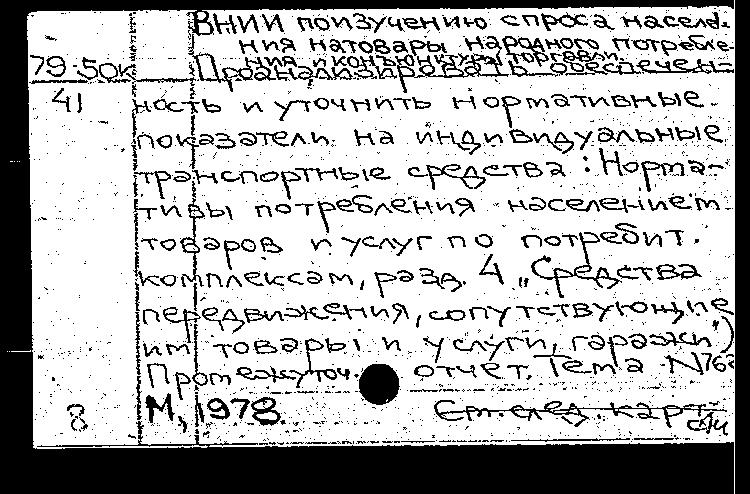 ВНИИ по изучению спроса населе-
ния на товары народного потребле-
ния и конъюнктуры торговли.
79:50к Проанализировать обеспечен-
41 ность и уточнить нормативные
показатели на индивидуальные
транспортные средства: (Норма-
тивы потребления населением
товаров и услуг по потребит.
комплексам, разд. 4 „Средства
передвижения, сопутствующие
им товары и услуги, гаражи")
Промежуточ. отчет. Тема N763
8 М., 1978. См. след. карт.